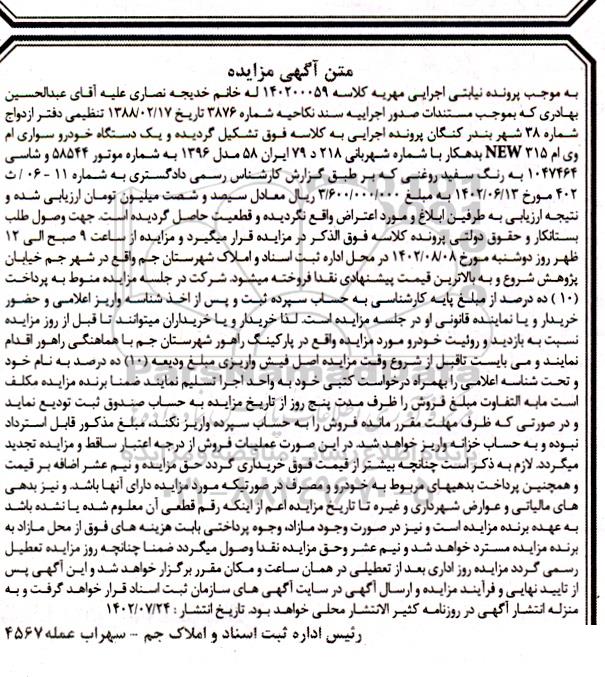 متن آگهی مزایده
به موجب پرونده نیابتی اجرایی مهریه کلاسه ۱۴۰۲۰۰۰۵۹ له خانم خدیجه نصاری علیه آقای عبدالحسین
بهادری که بموجب مستندات صدور اجراییه سند نکاحیه شماره ۳۸۷۶ تاریخ ۱۳۸۸/۰۲/۱۷ تنظیمی دفتر ازدواج
شماره ۳۸ شهر بندر کنگان پرونده اجرایی به کلاسه فوق تشکیل گردیده و یک دستگاه خودرو سواری ام
وی ام ۳۱۵ NEW بدهکار با شماره شهربانی ۲۱۸ د ۷۹ ایران ۵۸ مدل ۱۳۹۶ به شماره موتور ۵۸۵۴۴ و شاسی
۱۰۴۷۴۶۴ به رنگ سفید روغنی که بر طبق گزارش کارشناس رسمی دادگستری به شماره ۱۱ - ۰۶ / ث
۴۰۲ مورخ ۱۴۰۲/۰۶/۱۳ به مبلغ ۳/۶۰۰/۰۰۰/۰۰۰ ریال معادل سیصد و شصت میلیون تومان ارزیابی شده و
نتیجه ارزیابی به طرفین ابلاغ و مورد اعتراض واقع نگردیده و قطعیت حاصل گردیده است. جهت وصول طلب
بستانکار و حقوق دولتی پرونده کلاسه فوق الذکر در مزایده قرار میگیرد و مزایده از ساعت ۹ صبح الی ۱۲
ظهر روز دوشنبه مورخ ۱۴۰۲/۰۸/۰۸ در محل اداره ثبت اسناد و املاک شهرستان جم واقع در شهر جم خیابان
پژوهش شروع و به بالاترین قیمت پیشنهادی نقدا فروخته میشود. شرکت در جلسه مزایده منوط به پرداخت
(۱۰) ده درصد از مبلغ پایه کارشناسی به حساب سپرده ثبت و پس از اخذ شناسه واریز اعلامی و حضور
خریدار و یا نماینده قانونی او در جلسه مزایده است. لذا خریدار و یا خریداران میتوانند تا قبل از روز مزایده
نسبت به بازدید و روئیت خودرو مورد مزایده واقع در پارکینگ راهور شهرستان جم با هماهنگی راهور اقدام
نمایند و می بایست تاقبل از شروع وقت مزایده اصل فیش واریزی مبلغ ودیعه (۱۰) ده درصد به نام خود
و تحت شناسه اعلامی را بهمراه درخواست کتبی خود به واحد اجرا تسلیم نمایند ضمنا برنده مزایده مکلف
است مابه التفاوت مبلغ فروش را ظرف مدت پنج روز از تاریخ مزایده به حساب صندوق ثبت تودیع نماید
و در صورتی که ظرف مهلت مقرر مانده فروش را به حساب سپرده واریز نکند، مبلغ مذکور قابل استرداد
نبوده و به حساب خزانه واریز خواهد شد. در این صورت عملیات فروش از درجه اعتبار ساقط و مزایده تجدید
میگردد. لازم به ذکر است چنانچه بیشتر از قیمت فوق خریداری گردد حق مزایده و نیم عشر اضافه بر قیمت
و همچنین پرداخت بدهیهای مربوط به خودرو و مصرف در صورتیکه مورد مزایده دارای آنها باشد. و نیز بدهی
های مالیاتی و عوارض شهرداری و غیره تا تاریخ مزایده اعم از اینکه رقم قطعی آن معلوم شده یا نشده باشد
به عهده برنده مزایده است و نیز در صورت وجود مازاد، وجوه پرداختی بابت هزینه های فوق از محل مازاد به
برنده مزایده مسترد خواهد شد و نیم عشر وحق مزایده نقدا وصول میگردد ضمنا چنانچه روز مزایده تعطیل
رسمی گردد مزایده روز اداری بعد از تعطیلی در همان ساعت و مکان مقرر برگزار خواهد شد و این آگهی پس
از تایید نهایی و فرآیند مزایده و ارسال آگهی در سایت آگهی های سازمان ثبت اسناد قرار خواهد گرفت و به
منزله انتشار آگهی در روزنامه کثیر الانتشار محلی خواهد بود. تاریخ انتشار : ۱۴۰۲/۰۷/۲۴
رئیس اداره ثبت اسناد و املاک جم - سهراب عمله ۴۵۶۷